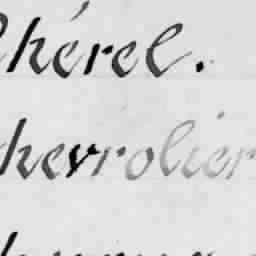 Chérel.
Chevrolier